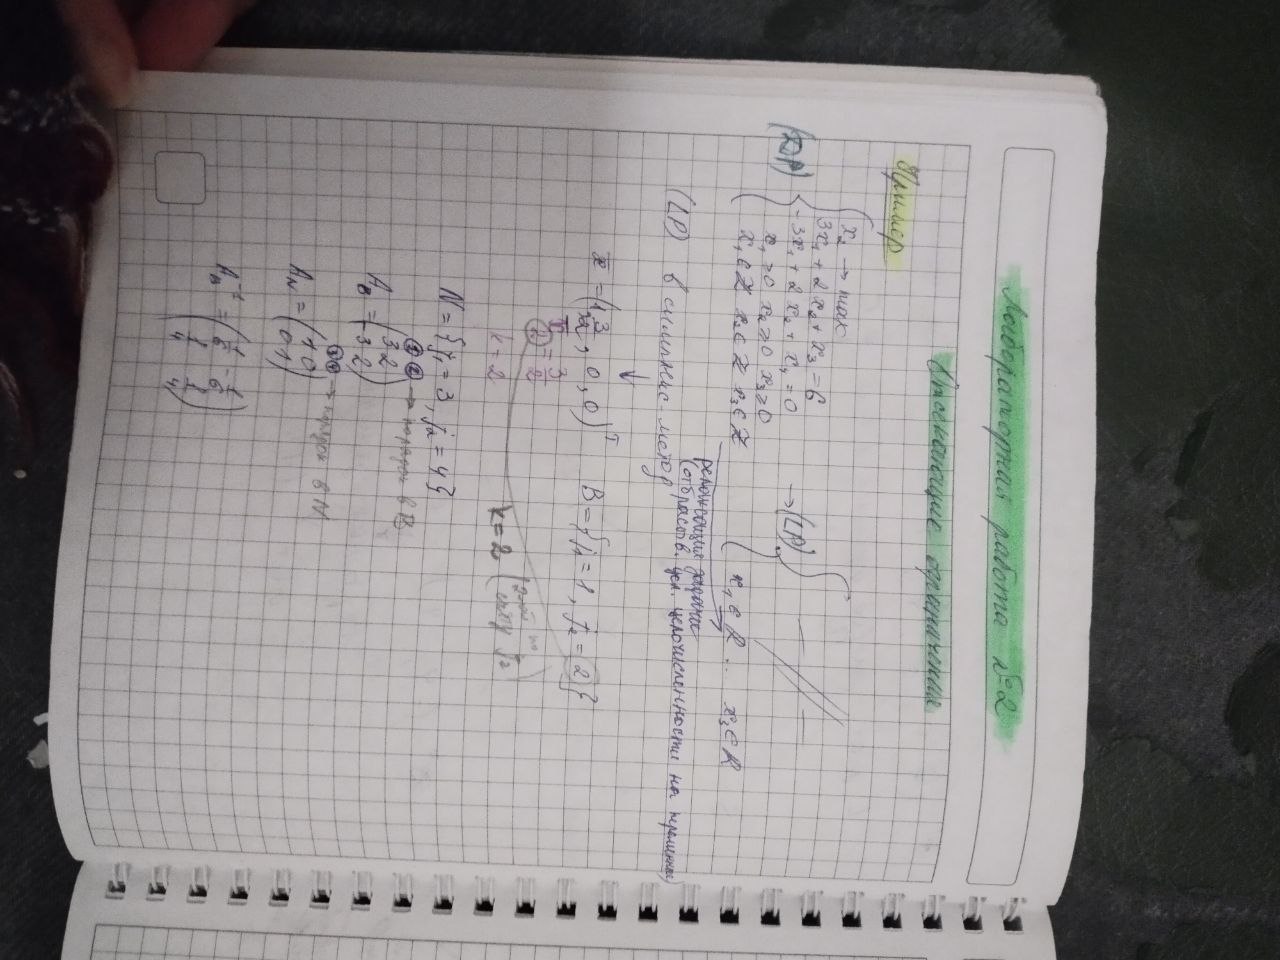 Лабораторная работа №2
Отсекающие ограничения
Пример
x₂ → max
3x₁ + 2x₂ + x₃ = 6
-3x₁ + 2x₂ + x₄ = 0
x₁ ≥ 0 x₂ ≥ 0 x₃ ≥ 0
x₁ ∈ Z x₂ ∈ Z x₃ ∈ Z
→ (LP)
x₁ ∈ R ... x₃ ∈ R
релаксация задачи
(отбрасыв. усл. целочисленности на переменные)
(LP) в симплекс-метод
↓
x̄ = (1, 3/2, 0, 0)ᵀ B = {j₁ = 1, j₂ = 2}
2 = 3/2
k = 2 k = 2 (по j₂)
N = {j₁ = 3, j₂ = 4}
1 2 → порядок в B
A_B = (3 2
-3 2)
3 4 → порядок в N
A_N = (1 0
0 1)
A_B⁻¹ = (1/6 -1/6
1/4 1/4)